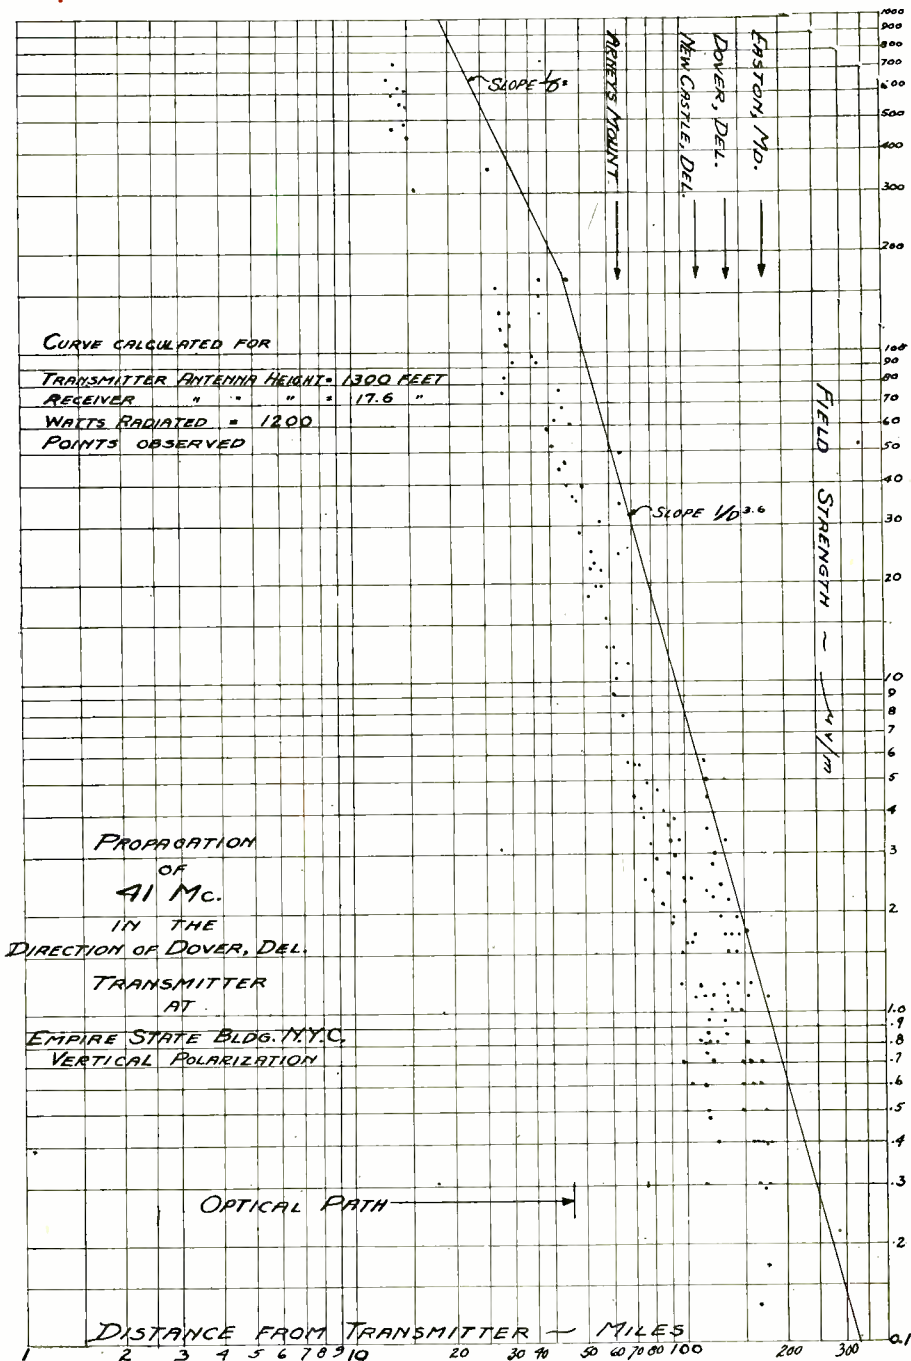 SLOPE 1/D²
ARNEYS MOUNT
NEW CASTLE, DEL.
DOVER, DEL.
EASTON, MD.
CURVE CALCULATED FOR
TRANSMITTER ANTENNA HEIGHT = 1300 FEET
RECEIVER " " " = 17.6 "
WATTS RADIATED = 1200
POINTS OBSERVED
SLOPE 1/D 3.6
FIELD STRENGTH ~ μV/m
PROPAGATION
OF
41 MC.
IN THE
DIRECTION OF DOVER, DEL.
TRANSMITTER
AT
EMPIRE STATE BLDG. N.Y.C.
VERTICAL POLARIZATION
OPTICAL PATH
DISTANCE FROM TRANSMITTER ~ MILES
1 2 3 4 5 6 7 8 9 10 20 30 40 60 70 80 100 200 300
1000
900
800
700
600
500
400
300
200
100
90
80
70
60
50
40
30
20
10
9
8
7
6
5
4
3
2
1.0
.9
.8
.7
.6
.5
.4
.3
.2
0.1